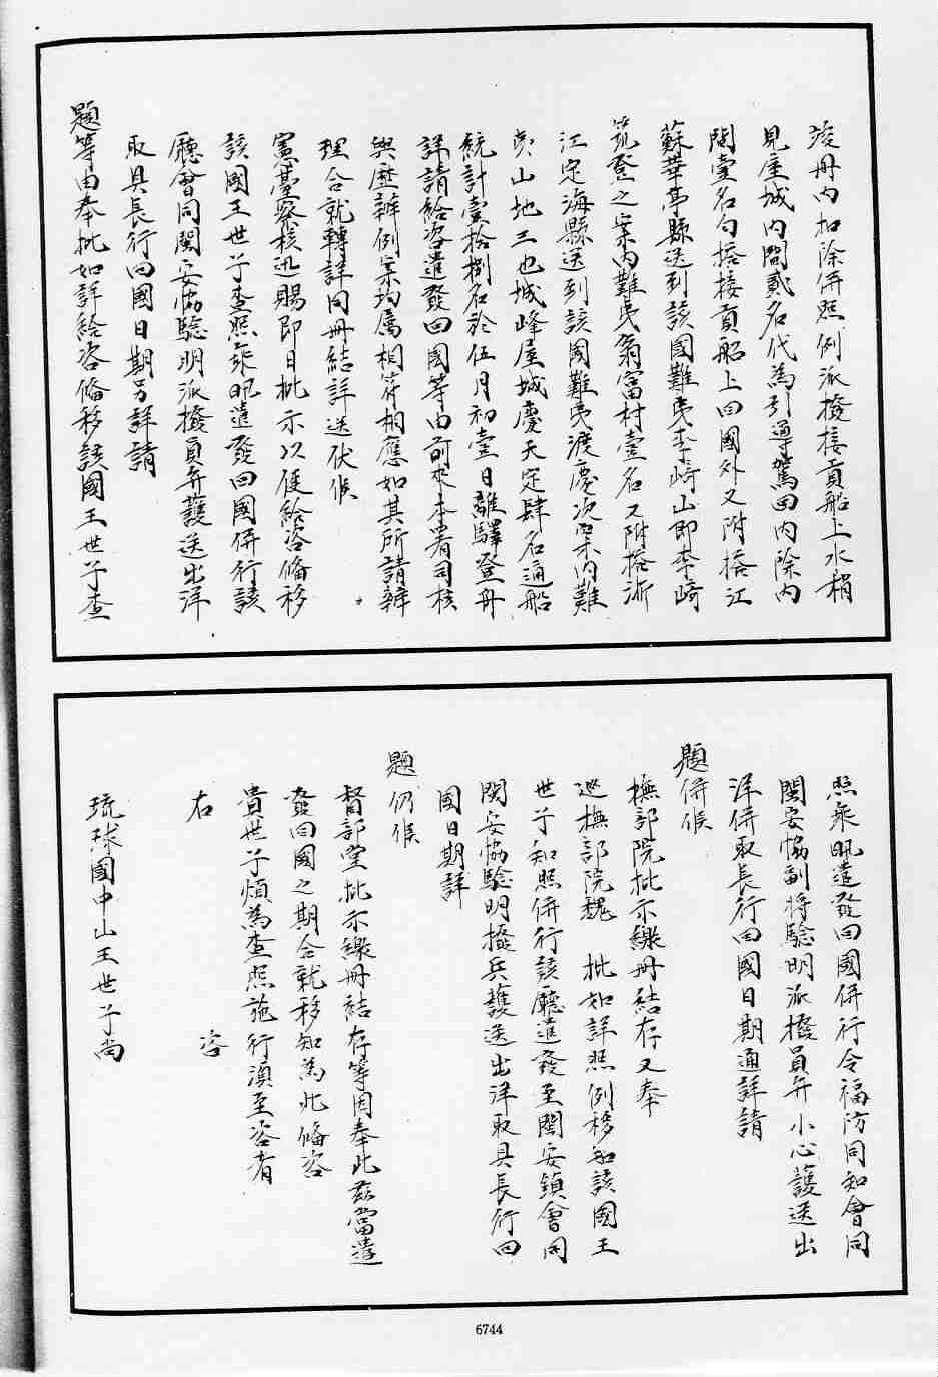 淩冊內扣除併照例派撥接貢船上水梢
見屋城內間貳名代為引導駕回內除內
間壹名勻搭接貢船上回國外又附搭江
蘇華亭縣送到該國難夷李崎山即李崎
筑登之案內難夷翁富村壹名又附搭浙
江定海縣送到該國難夷渡慶次案內難
夷山地三也城峰屋城慶天定肆名通船
統計壹拾捌名於伍月初壹日離驛登舟
詳請給咨遣發回國等由前來本署司核
與歷辦例案均屬相符相應如其所請辦
理合就轉詳同冊結詳送伏候
憲臺察核迅賜即日批示以便給咨俻移
該國王世子查照乘汛遣發回國併行該
廳會同閩安協驗明派撥員弁護送出洋
取具長行回國日期另詳請
題等由奉批如詳給咨俻移該國王世子查
照乘汛遣發回國併行令福防同知會同
閩安協副將驗明派撥員弁小心護送出
洋併取長行回國日期通詳請
題併候
撫部院批示繳冊結存又奉
巡撫部院魏 批如詳照例移知該國王
世子知照併行該廳遣發至閩安鎮會同
閩安協驗明撥兵護送出洋取具長行回
國日期詳
題仍候
督部堂批示繳冊結存等因奉此茲當遣
發回國之期合就移知為此俻咨
貴世子煩為查照施行湏至咨者
右 咨
琉球國中山王世子尚
6744